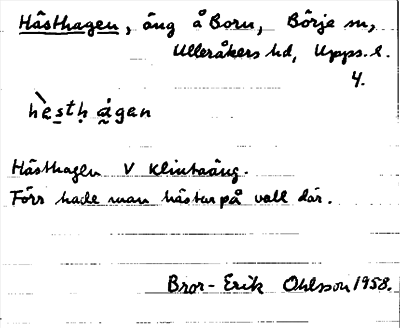 Hästhagen, äng å Born, Börje sn,
Ulleråkers hd, Upps. l.
4.
hèstḥ ágan
Hästhagen V Klintaäng.
Förr hade man hästar på vall där.
Bror-Erik Ohlsson 1958.